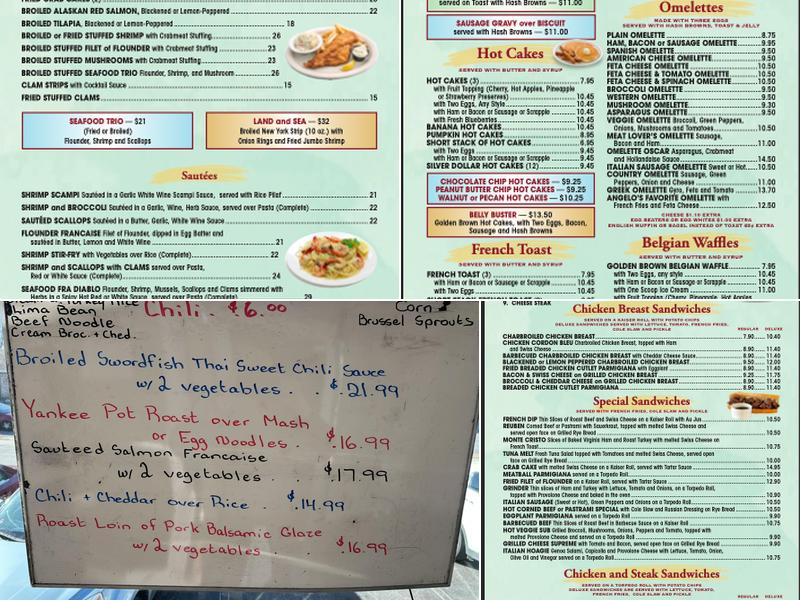 BROILED ALASKAN RED SALMON, Blackened or Lemon-Peppered 22
BROILED TILAPIA, Blackened or Lemon-Peppered 18
BROILED or FRIED STUFFED SHRIMP with Crabmeat Stuffing 26
BROILED STUFFED FILET of FLOUNDER with Crabmeat Stuffing 23
BROILED STUFFED MUSHROOMS with Crabmeat Stuffing 23
BROILED STUFFED SEAFOOD TRIO Flounder, Shrimp, and Mushroom 26
CLAM STRIPS with Cocktail Sauce 15
FRIED STUFFED CLAMS 15
SEAFOOD TRIO — $21
(Fried or Broiled)
Flounder, Shrimp and Scallops
LAND and SEA — $32
Broiled New York Strip (10 oz.) with
Onion Rings and Fried Jumbo Shrimp
Sautées
SHRIMP SCAMPI Sautéed in a Garlic White Wine Scampi Sauce, served with Rice Pilaf 21
SHRIMP and BROCCOLI Sautéed in Garlic, Wine, Herb Sauce, served over Pasta (Complete) 22
SAUTÉED SCALLOPS Sautéed in a Butter, Garlic, White Wine Sauce 22
FLOUNDER FRANCAISE Filet of Flounder, dipped in Egg Batter and
sautéed in Butter, Lemon and White Wine 21
SHRIMP STIR-FRY with Vegetables over Rice (Complete) 22
SHRIMP and SCALLOPS with CLAMS served over Pasta,
Red or White Sauce (Complete) 24
SEAFOOD FRA DIABLO Flounder, Shrimp, Mussels, Scallops and Clams simmered with
Herbs in a Spicy Hot Red or White Sauce, served over Pasta 29
served on Toast with Hash Browns — $11.00
SAUSAGE GRAVY over BISCUIT
served with Hash Browns — $11.00
Hot Cakes
SERVED WITH BUTTER AND SYRUP
HOT CAKES (3) 7.95
with Fruit Topping (Cherry, Hot Apples, Pineapple
or Strawberry Preserves) 10.45
with Two Eggs, Any Style 10.45
with Ham or Bacon or Sausage or Scrapple 10.45
with Fresh Blueberries 10.45
BANANA HOT CAKES 10.45
PUMPKIN HOT CAKES 8.95
SHORT STACK OF HOT CAKES 6.95
with Two Eggs 9.45
with Ham or Bacon or Sausage or Scrapple 9.45
SILVER DOLLAR HOT CAKES (12) 9.45
CHOCOLATE CHIP HOT CAKES — $9.25
PEANUT BUTTER CHIP HOT CAKES — $9.25
WALNUT or PECAN HOT CAKES — $10.25
BELLY BUSTER — $13.50
Golden Brown Hot Cakes, with Two Eggs, Bacon,
Sausage and Hash Browns
French Toast
SERVED WITH BUTTER AND SYRUP
FRENCH TOAST (3) 7.95
with Ham or Bacon or Sausage or Scrapple 10.45
Omelettes
MADE WITH THREE EGGS
SERVED WITH HASH BROWNS, TOAST & JELLY
PLAIN OMELETTE 8.75
HAM, BACON or SAUSAGE OMELETTE 9.95
SPANISH OMELETTE 9.50
AMERICAN CHEESE OMELETTE 9.50
FETA CHEESE OMELETTE 9.50
FETA CHEESE & TOMATO OMELETTE 10.50
FETA CHEESE & SPINACH OMELETTE 10.50
BROCCOLI OMELETTE 9.50
WESTERN OMELETTE 9.50
MUSHROOM OMELETTE 9.30
ASPARAGUS OMELETTE 9.50
VEGGIE OMELETTE Broccoli, Green Peppers,
Onions, Mushrooms and Tomatoes 10.50
MEAT LOVER'S OMELETTE Sausage,
Bacon and Ham 11.00
OMELETTE OSCAR Asparagus, Crabmeat
and Hollandaise Sauce 14.50
ITALIAN SAUSAGE OMELETTE Sweet or Hot 10.50
COUNTRY OMELETTE Sausage, Green
Peppers, Onion and Cheese 11.00
GREEK OMELETTE Gyro, Feta and Tomato 13.70
ANGELO'S FAVORITE OMELETTE with
French Fries and Feta Cheese 12.50
CHEESE $1.10 EXTRA
EGG BEATERS OR EGG WHITES $1.00 EXTRA
ENGLISH MUFFIN OR BAGEL INSTEAD OF TOAST 60¢ EXTRA
Belgian Waffles
SERVED WITH BUTTER AND SYRUP
GOLDEN BROWN BELGIAN WAFFLE 7.95
with Two Eggs, any style 10.45
with Ham or Bacon or Sausage or Scrapple 10.45
with One Scoop Ice Cream 11.00
Lima Bean
Beef Noodle
Cream Broc. + Ched.
Chili . $6.00
Corn
Brussel Sprouts
Broiled Swordfish Thai Sweet Chili Sauce
w/ 2 vegetables . . . $21.99
Yankee Pot Roast over Mash
or Egg Noodles . . $16.99
Sauteed Salmon Francaise
w/ 2 vegetables . . . $17.99
Chili + Cheddar over Rice . $14.99
Roast Loin of Pork Balsamic Glaze
w/ 2 vegetables . . . $16.99
CHEESE STEAK
Chicken Breast Sandwiches
SERVED ON A KAISER ROLL WITH POTATO CHIPS
DELUXE SANDWICHES SERVED WITH LETTUCE, TOMATO, FRENCH FRIES,
COLE SLAW AND PICKLE
REGULAR DELUXE
CHARBROILED CHICKEN BREAST 7.90 10.40
CHICKEN CORDON BLEU Charbroiled Chicken Breast, topped with Ham
and Swiss Cheese 8.90 11.40
BARBECUED CHARBROILED CHICKEN BREAST with Cheddar Cheese Sauce 8.90 11.40
BLACKENED or LEMON PEPPERED CHARBROILED CHICKEN BREAST 9.50 12.00
FRIED BREADED CHICKEN CUTLET PARMIGIANA with Eggplant 8.90 11.40
BACON & SWISS CHEESE on GRILLED CHICKEN BREAST 9.25 11.75
BROCCOLI & CHEDDAR CHEESE on GRILLED CHICKEN BREAST 8.90 11.40
BREADED CHICKEN CUTLET PARMIGIANA 8.90 11.40
Special Sandwiches
SERVED WITH FRENCH FRIES, COLE SLAW AND PICKLE
FRENCH DIP Thin Slices of Roast Beef and Swiss Cheese on a Kaiser Roll with Au Jus 10.50
REUBEN Corned Beef or Pastrami with Sauerkraut, topped with melted Swiss Cheese and
served open face on Grilled Rye Bread 10.50
MONTE CRISTO Slices of Baked Virginia Ham and Roast Turkey with melted Swiss Cheese on
French Toast 10.50
TUNA MELT Fresh Tuna Salad topped with Tomatoes and melted Swiss Cheese, served open
face on Grilled Rye Bread 10.00
CRAB CAKE with melted Swiss Cheese on a Kaiser Roll, served with Tartar Sauce 14.95
MEATBALL PARMIGIANA served on a Torpedo Roll 10.50
FRIED FILET of FLOUNDER on a Kaiser Roll, served with Tartar Sauce 12.90
GRINDER Thin slices of Ham and Turkey with Lettuce, Tomato and Onions, on a Torpedo Roll,
topped with Provolone Cheese and baked in the oven 10.90
ITALIAN SAUSAGE (Sweet or Hot), Green Peppers and Onions on a Torpedo Roll 10.50
HOT CORNED BEEF or PASTRAMI SPECIAL with Cole Slaw and Russian Dressing on Rye Bread 10.50
EGGPLANT PARMIGIANA served on a Torpedo Roll 9.90
BARBECUED BEEF Thin Slices of Roast Beef in Barbecue Sauce on a Kaiser Roll 10.75
HOT VEGGIE SUB Grilled Broccoli, Mushrooms, Onions, Peppers and Tomato, topped with
melted Provolone Cheese and served on a Torpedo Roll 9.90
GRILLED CHEESE SUPREME with Tomato and Bacon, served open face on Grilled Rye Bread 9.90
ITALIAN HOAGIE Genoa Salami, Capicolla and Provolone Cheese with Lettuce, Tomato, Onion,
Olive Oil and Vinegar served on a Torpedo Roll 10.75
Chicken and Steak Sandwiches
SERVED ON A TORPEDO ROLL WITH POTATO CHIPS
DELUXE SANDWICHES ARE SERVED WITH LETTUCE, TOMATO,
FRENCH FRIES, COLE SLAW AND PICKLE
REGULAR DELUXE